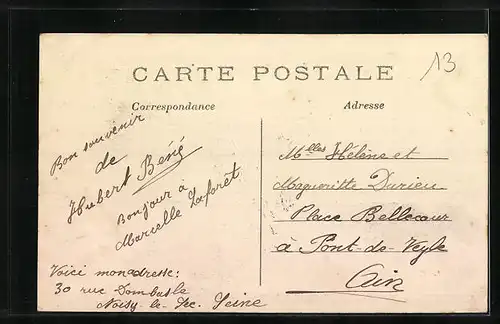 13
CARTE POSTALE
Correspondance
Adresse
Bon souvenir
de
Hubert Béné
Bonjour à
Marcelle Laforet
Voici mon adresse:
30 rue Dombasle
Noisy-le-Sec. Seine
Mlles Hélène et
Marguerite Durieu
Place Bellecour
à Pont-de-Veyle
Ain